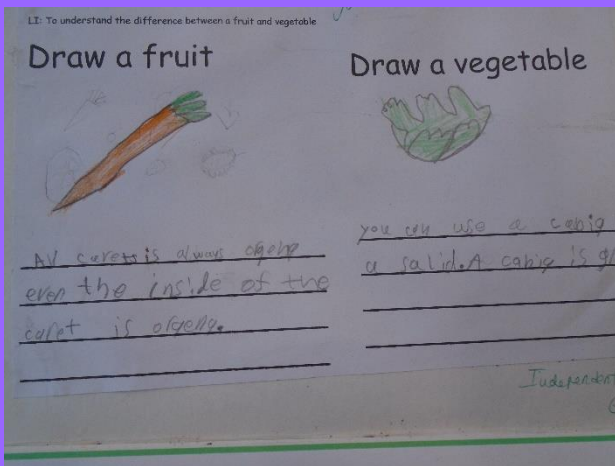 LI: To understand the difference between a fruit and vegetable
Draw a fruit
Draw a vegetable
AV carets is always orgeng
even the inside of the
caret is orgeng.
you can use a cabig
a salid. A cabig is g
Independent